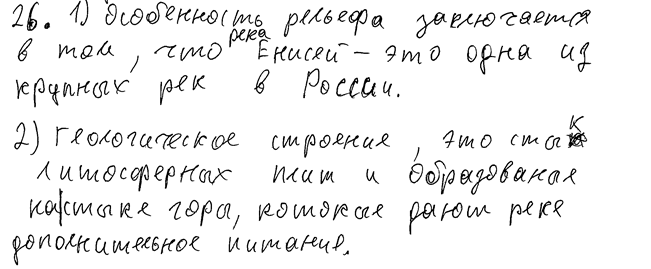 26. 1) Особенность рельефа заключается
в том, что река Енисей – это одна из
крупных рек в России.
2) Геологическое строение, это стык
литосферных плит и образование
на стыке горы, которые дают реке
дополнительное питание.